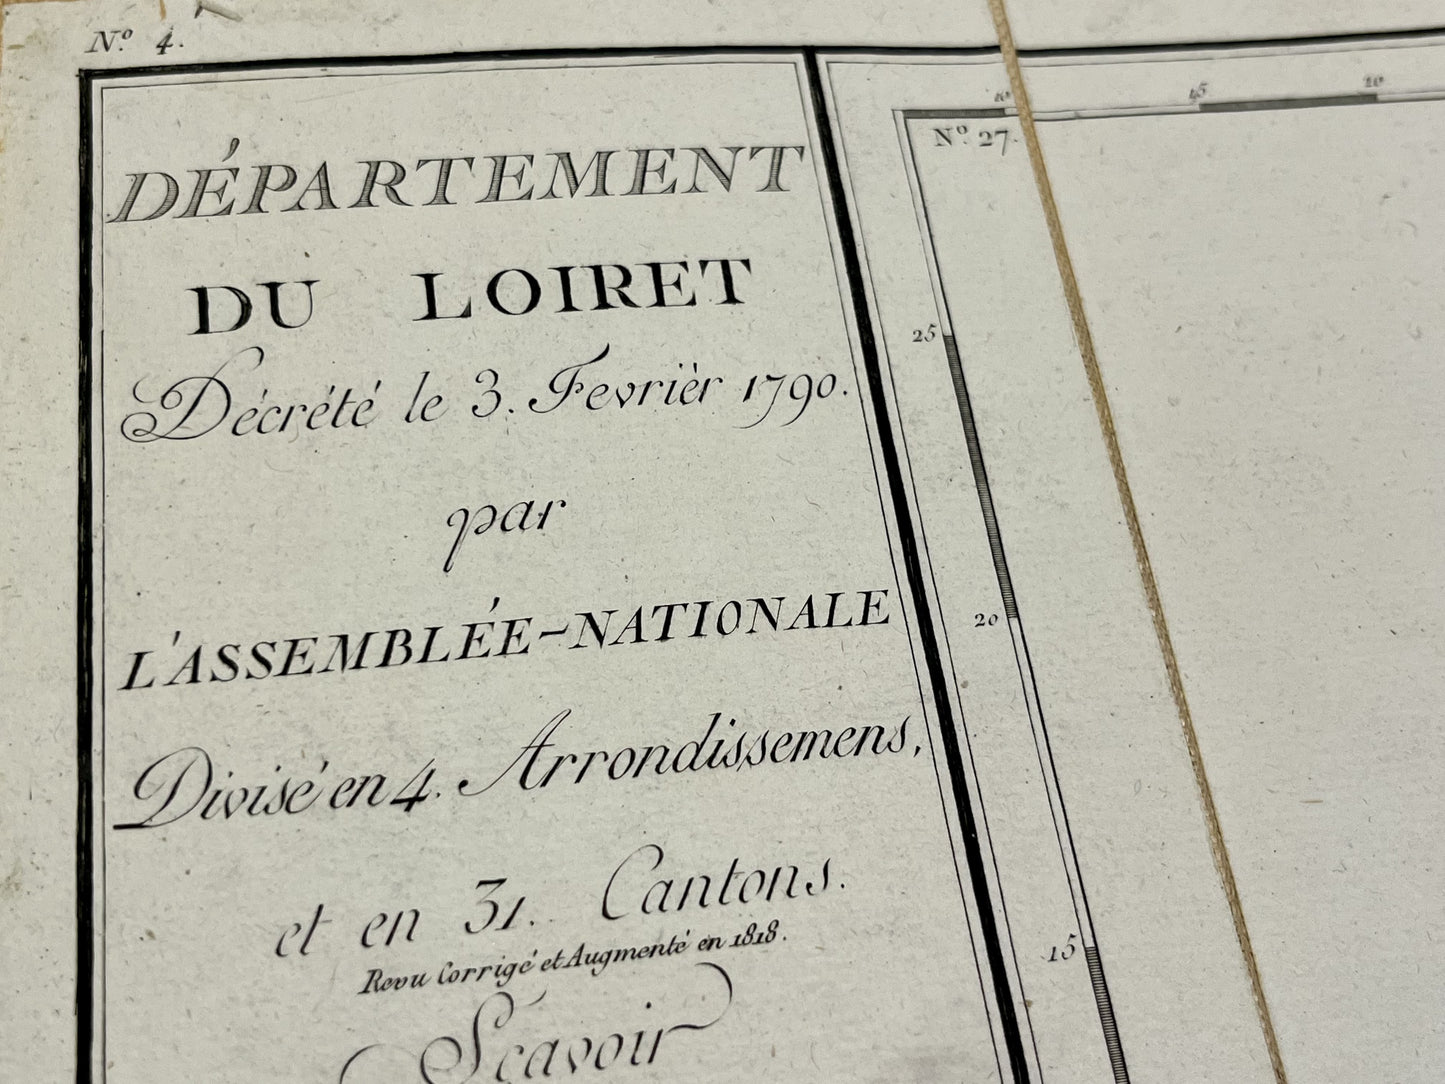 N.º 4.
DÉPARTEMENT
DU LOIRET
Décrété le 3. Fevrièr 1790.
par
L'ASSEMBLÉE-NATIONALE
Divisé en 4. Arrondissemens,
et en 31. Cantons.
Revu Corrigé et Augmenté en 1818.
Sçavoir
10 15 20
N.º 27.
25
20
15